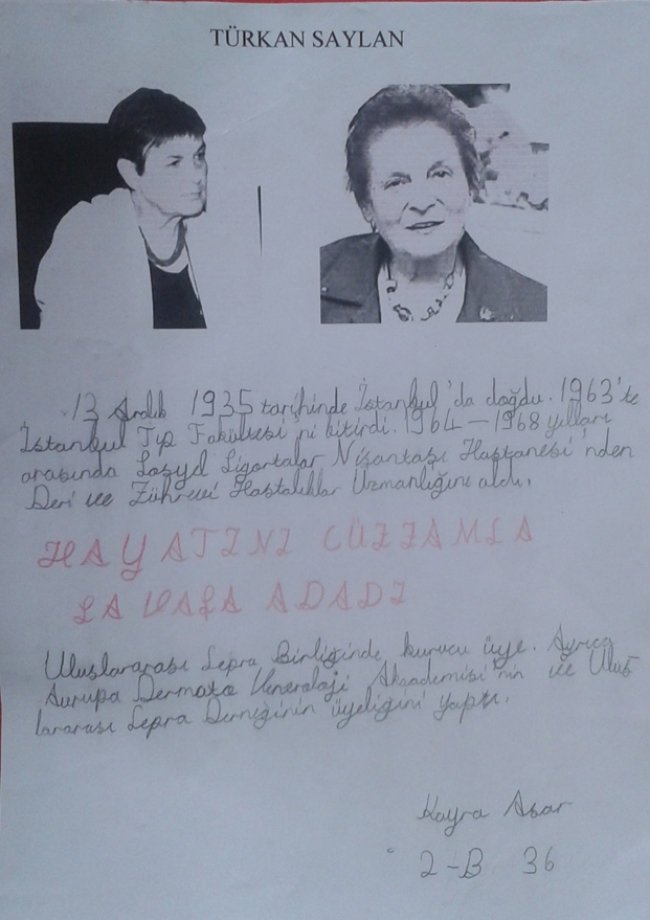 TÜRKAN SAYLAN
13 Aralık 1935 tarihinde İstanbul'da doğdu. 1963'te
İstanbul Tıp Fakültesi'ni bitirdi. 1964-1968 yılları
arasında Sosyal Sigortalar Nişantaşı Hastanesi'nden
Deri ve Zührevi Hastalıklar Uzmanlığını aldı.
HAYATINI CÜZZAMLA
SAVAŞA ADADI
Uluslararası Lepra Birliğinde kurucu üye. Ayrıca
Avrupa Dermato Veneraloji Akademisi'nin ve Ulus
lararası Lepra Derneğinin üyeliğini yaptı.
Kayra Asar
2-B 36